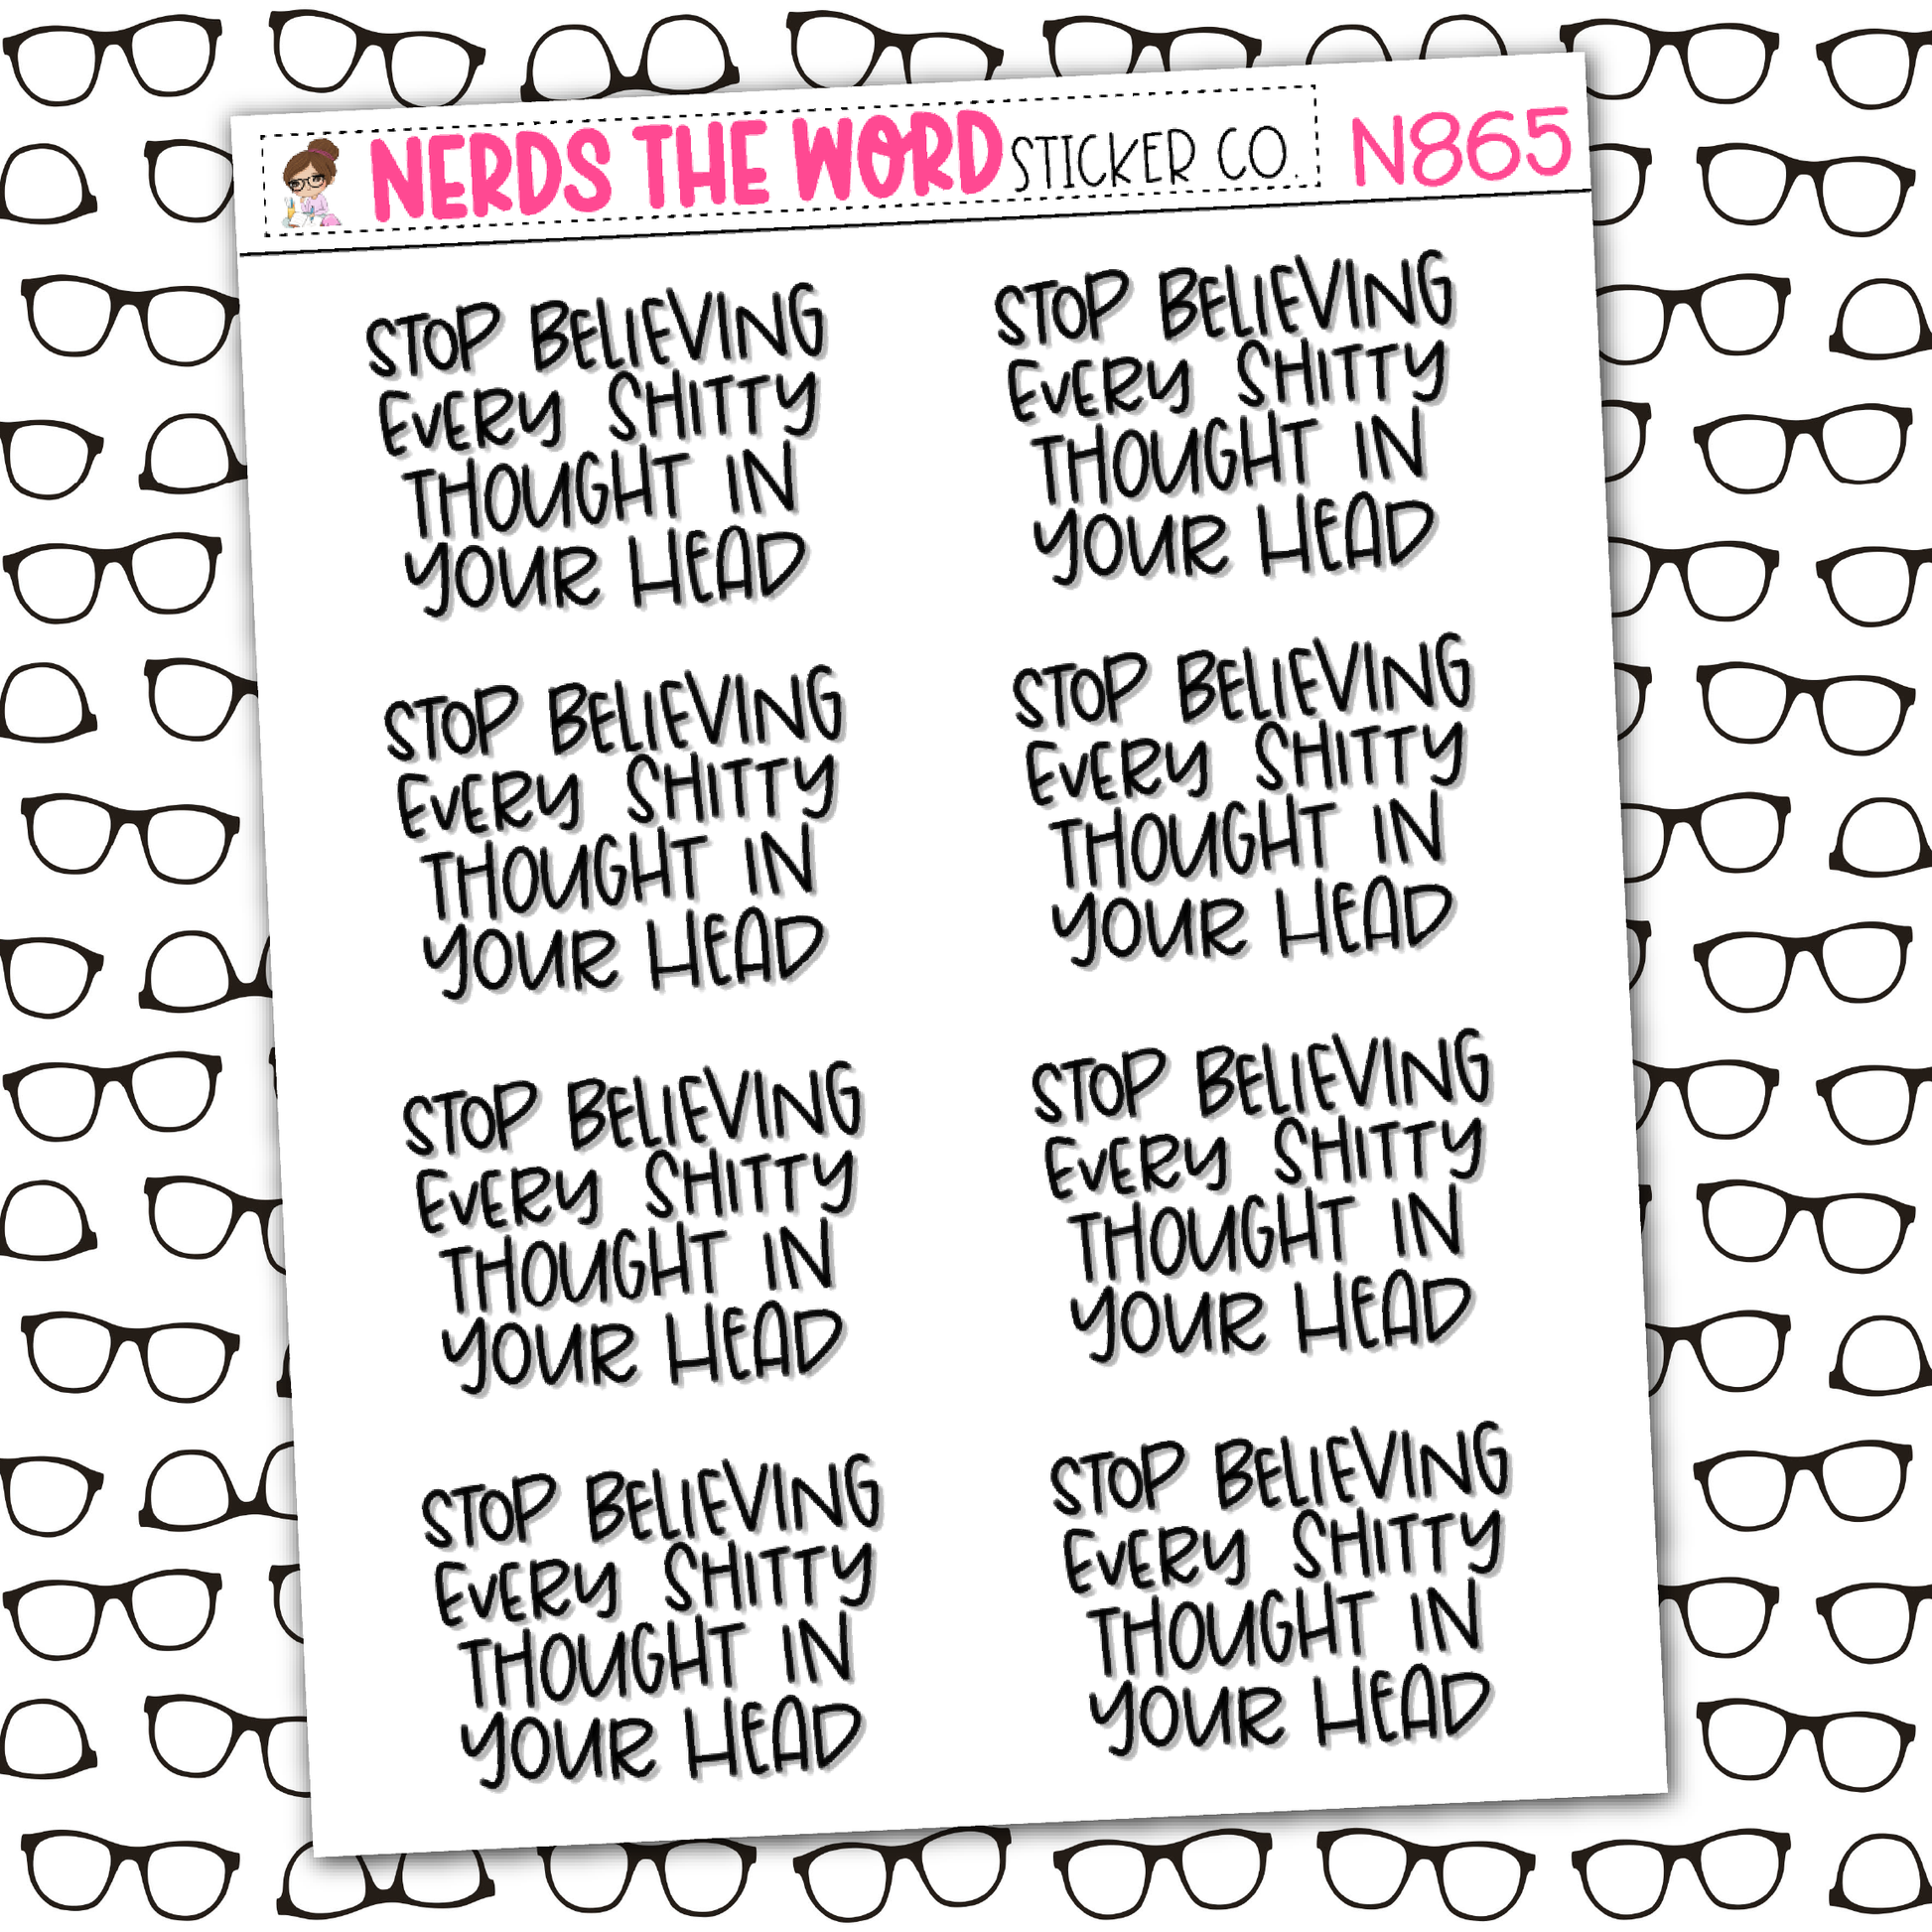 NERDS THE WORD STICKER CO. N865
STOP BELIEVING
EVERY SHITTY
THOUGHT IN
YOUR HEAD
STOP BELIEVING
EVERY SHITTY
THOUGHT IN
YOUR HEAD
STOP BELIEVING
EVERY SHITTY
THOUGHT IN
YOUR HEAD
STOP BELIEVING
EVERY SHITTY
THOUGHT IN
YOUR HEAD
STOP BELIEVING
EVERY SHITTY
THOUGHT IN
YOUR HEAD
STOP BELIEVING
EVERY SHITTY
THOUGHT IN
YOUR HEAD
STOP BELIEVING
EVERY SHITTY
THOUGHT IN
YOUR HEAD
STOP BELIEVING
EVERY SHITTY
THOUGHT IN
YOUR HEAD